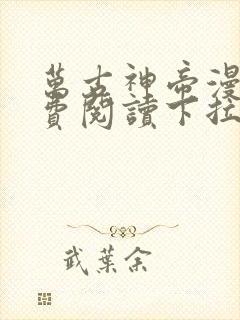 萬古神帝漫
費閱讀下拉
武葉余